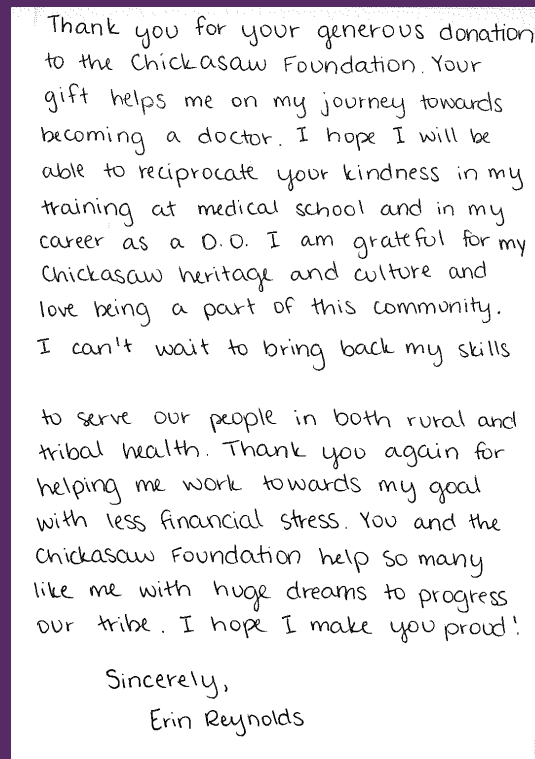 Thank you for your generous donation
to the Chickasaw Foundation. Your
gift helps me on my journey towards
becoming a doctor. I hope I will be
able to reciprocate your kindness in my
training at medical school and in my
career as a D.O. I am grateful for my
Chickasaw heritage and culture and
love being a part of this community.
I can't wait to bring back my skills
to serve our people in both rural and
tribal health. Thank you again for
helping me work towards my goal
with less financial stress. You and the
Chickasaw Foundation help so many
like me with huge dreams to progress
our tribe. I hope I make you proud!
Sincerely,
Erin Reynolds